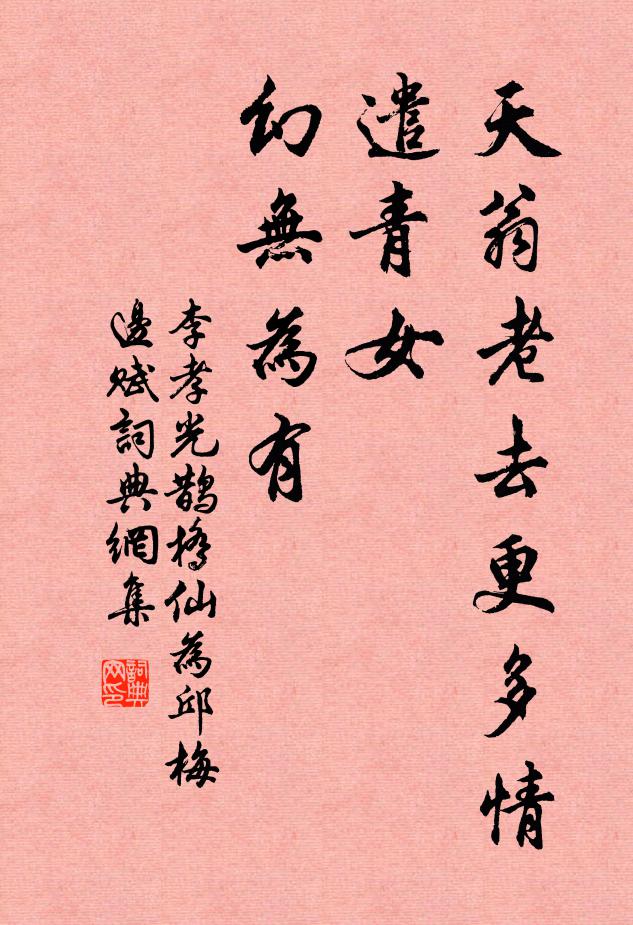 天翁老去更多情
遣青女
幻無為有
李孝光鵲橋仙為邱梅
邊赋詞典網集
詞典
网印